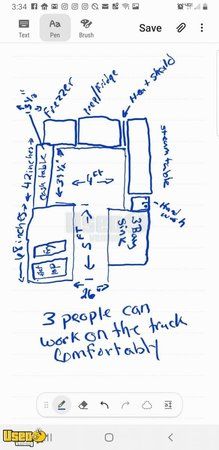 3:34
Save
Text
Pen
Brush
Freezer
prep/Fridge
Heat shield
steam table
42 inches
cash table
5 ½
4 FT
Hand wash
3 Bay Sink
5 FT
48 inches
26"
3 people can
work on the truck
comfortably